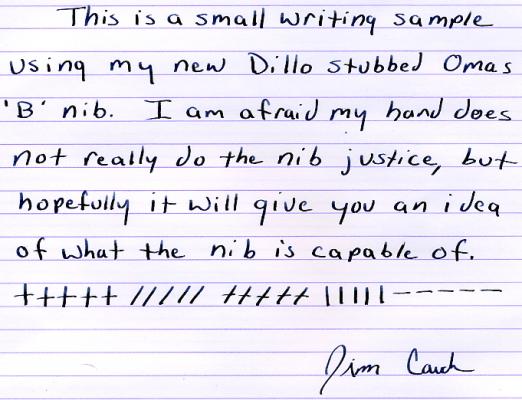 This is a small writing sample
using my new Dillo stubbed Omas
'B' nib. I am afraid my hand does
not really do the nib justice, but
hopefully it will give you an idea
of what the nib is capable of.
+++++ ///// +++++ ||||| -----
Jim